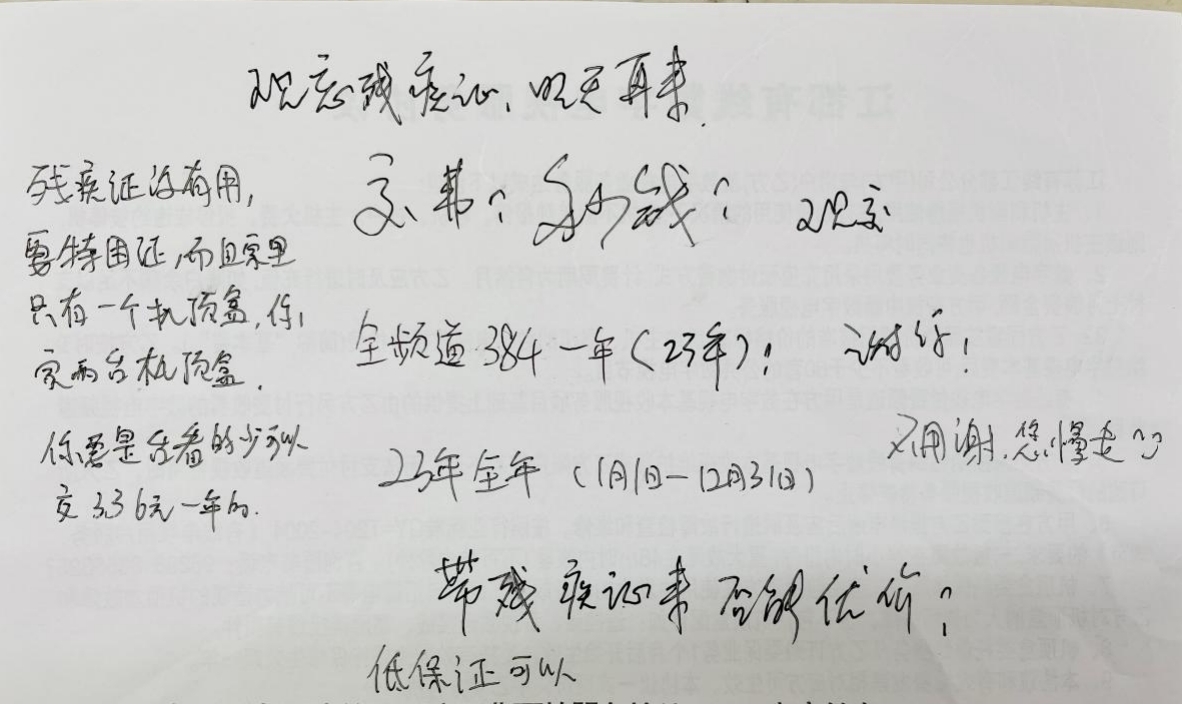 现忘残疾证,明天再来.
残疾证没有用,
要特困证,而且家里
只有一个机顶盒,你
家两台机顶盒.
你要是台看的少可以
交336元一年的.
交费?多少钱?
全频道384一年(23年)!
谢谢!
23年全年(1月1日-12月31日)
不用谢.您慢走~
带残疾证来否能优价?
低保证可以